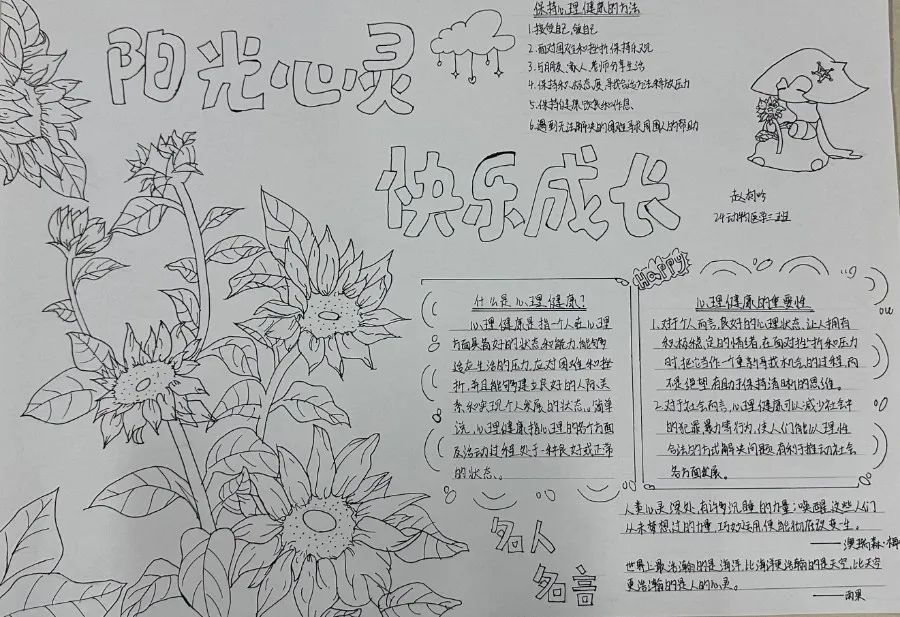 阳光心灵
快乐成长
保持心理健康的方法
1.接受自己,做自己
2.面对困难和挫折,保持乐观
3.与朋友、家人、老师分享生活
4.保持积极态度,寻找合适方法释放压力
5.保持健康饮食和作息
6.遇到无法解决的困难寻求周围人的帮助
24动物医学三班
什么是心理健康?
心理健康是指一个人在心理
方面具有好的状态和能力,能够
适应生活的压力,应对困难和挫
折,并且能够建立良好的人际关
系和实现个人发展的状态。简单
说,心理健康指心理的各个方面
及活动过程处于一种良好或正常
的状态。
Happy
心理健康的重要性
1.对于个人而言,良好的心理状态,让人拥有
积极稳定的情绪,在面对挫折和压力
时,把它当作一个重新寻找机会的过程,而
不是绝望,有助于保持清晰的思维。
2.对于社会而言,心理健康可以减少社会中
的犯罪暴力等行为,使人们能以理性
合法的方式解决问题,有利于推动社会
各方面发展。
名人
名言
人类心灵深处,有许多沉睡的力量;唤醒这些人们
从未梦想过的力量,巧妙运用,便能彻底改变一生。
——澳瑞森·梅
世界上最浩瀚的是海洋,比海洋更浩瀚的是天空,比天空
更浩瀚的是人的心灵。
——雨果